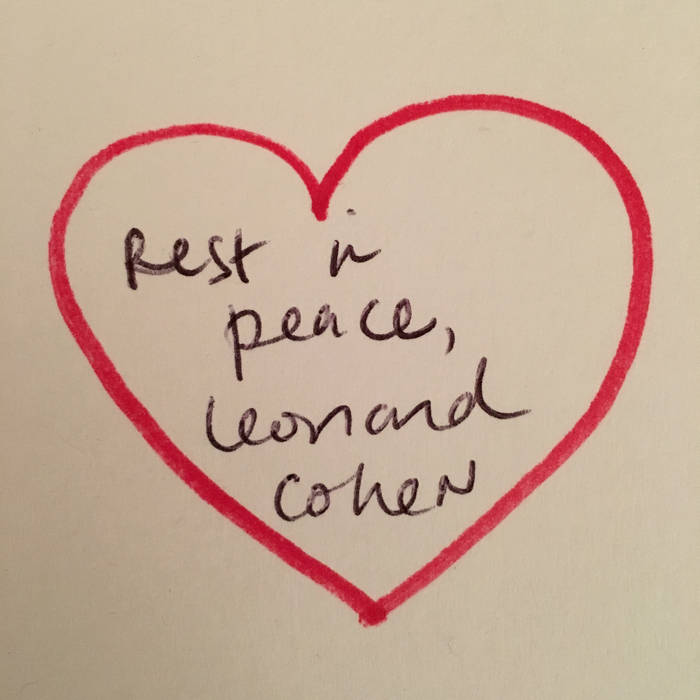 Rest in
peace,
Leonard
Cohen